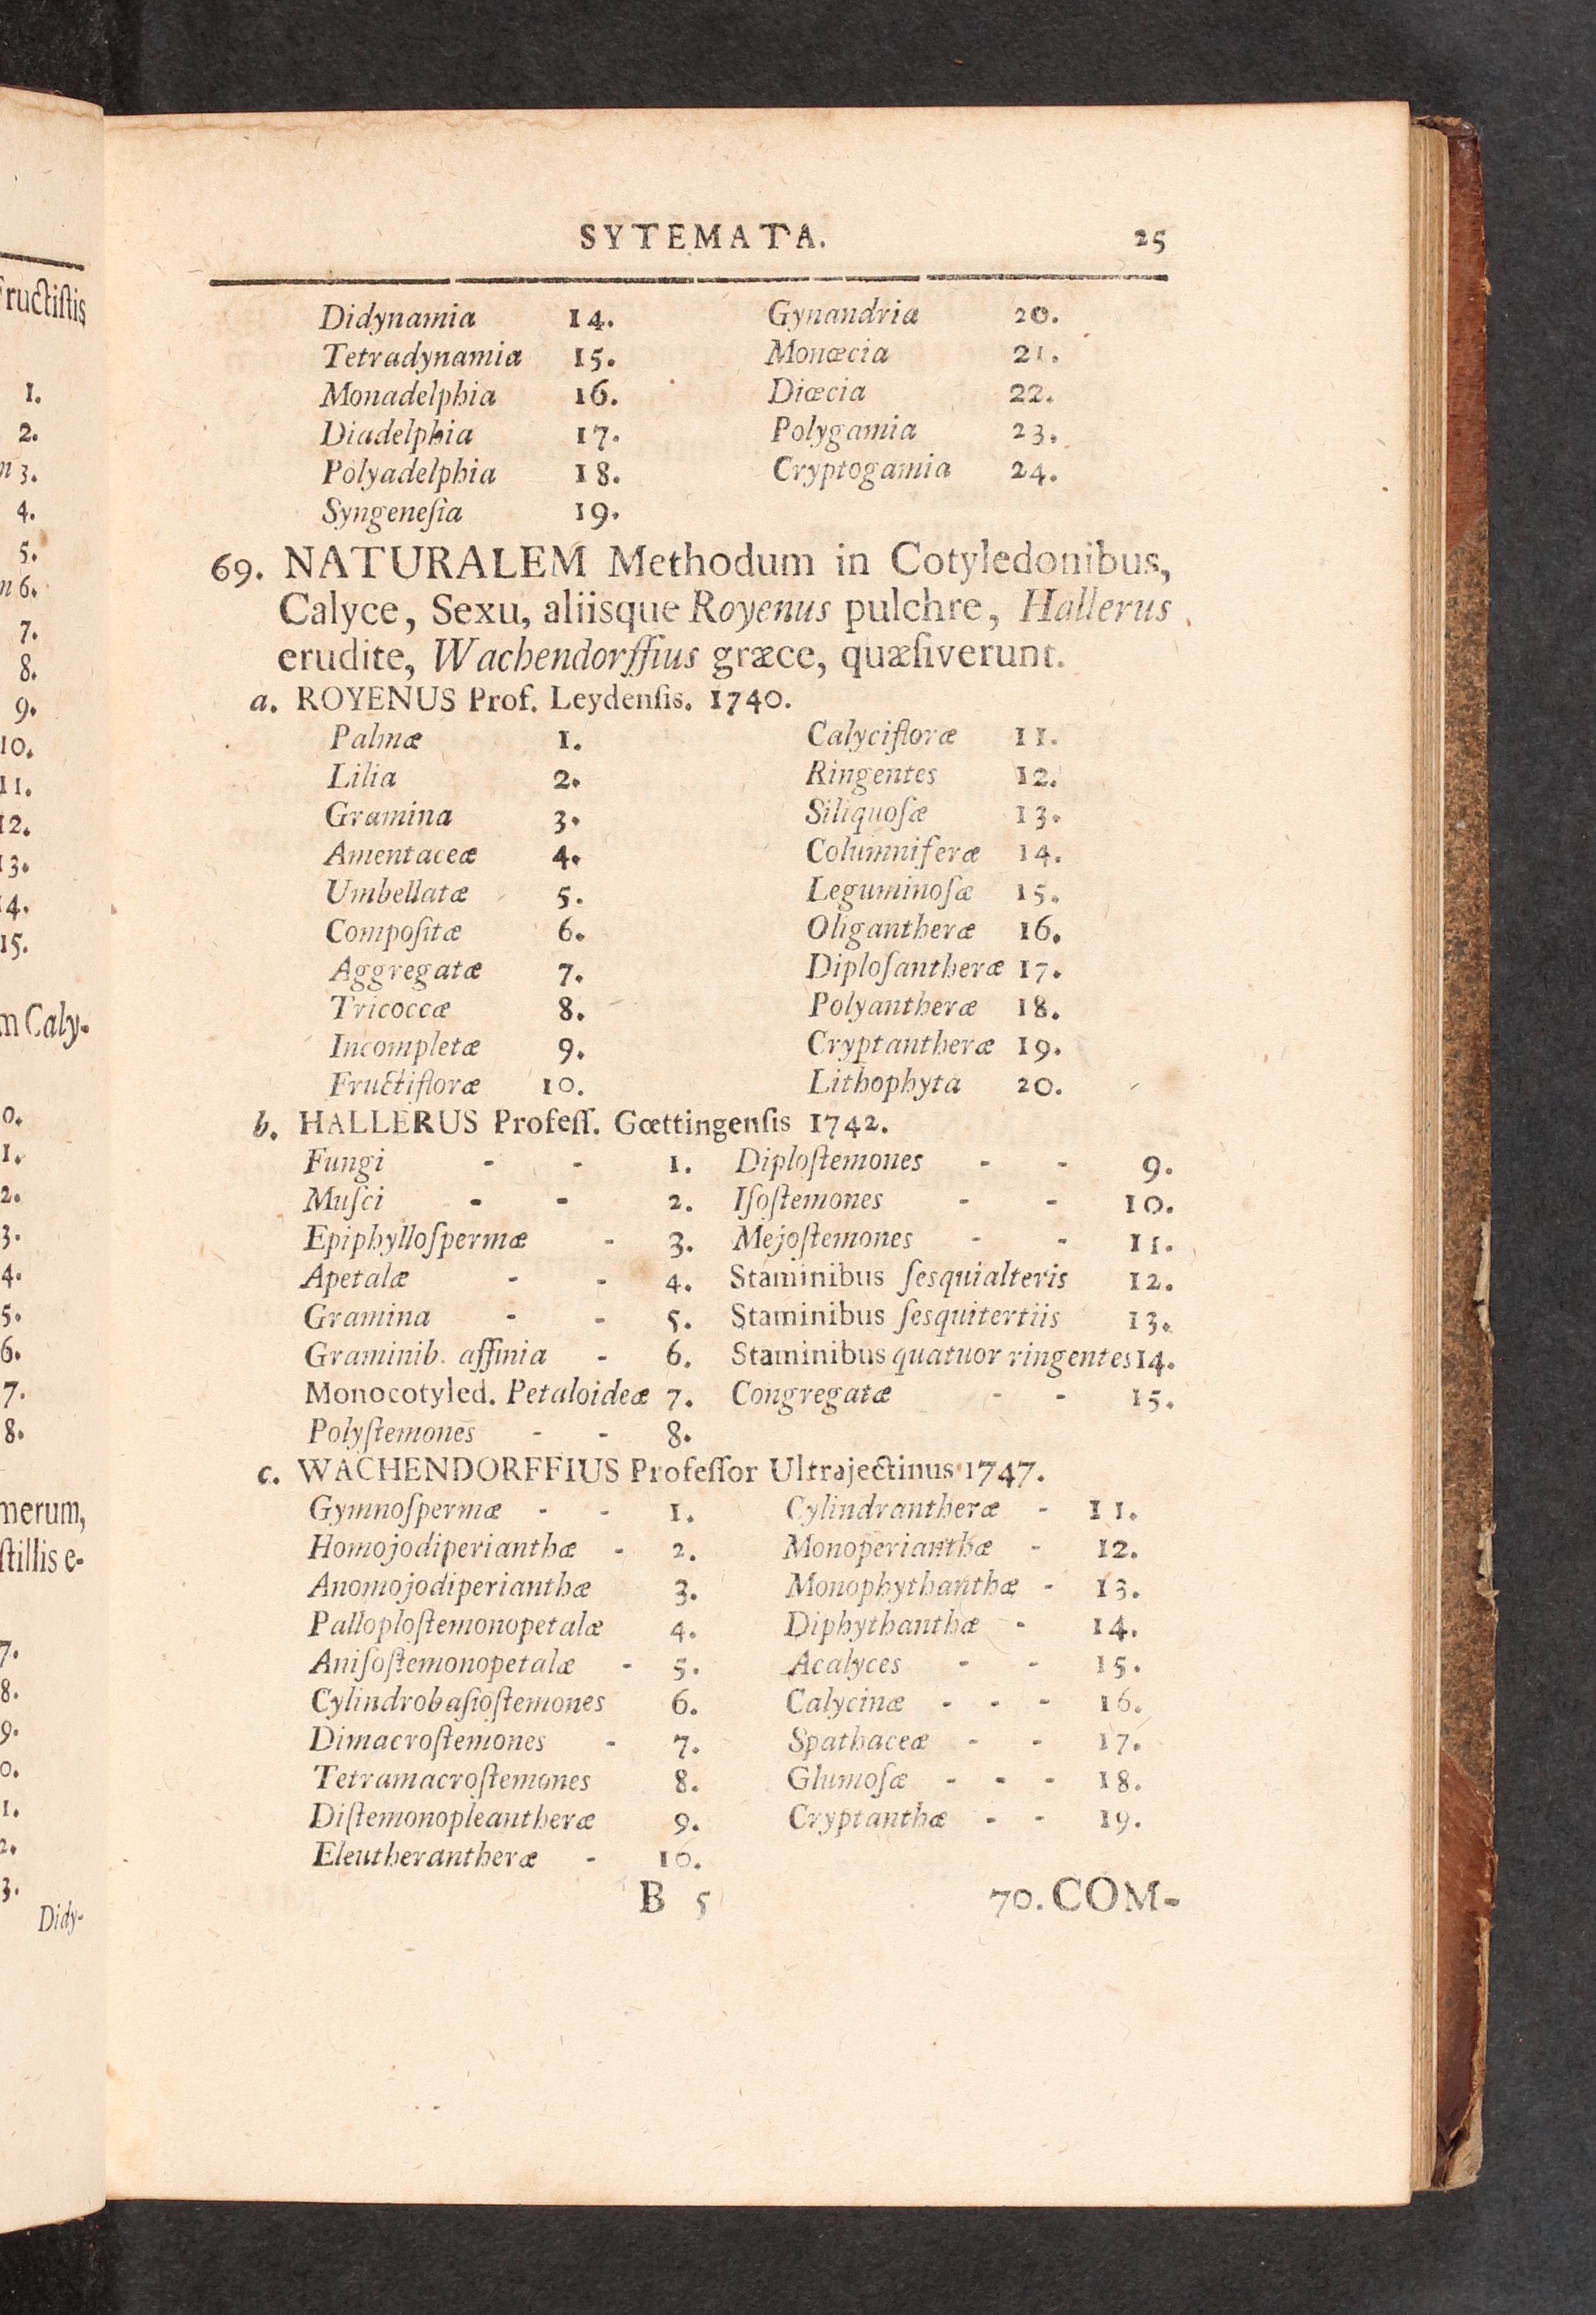 SYTEMATA. 25
Didynamia 14. Gynandria 20.
Tetradynamia 15. Monœcia 21.
Monadelphia 16. Diœcia 22.
Diadelphia 17. Polygamia 23.
Polyadelphia 18. Cryptogamia 24.
Syngeneſia 19.
69. NATURALEM Methodum in Cotyledonibus,
Calyce, Sexu, aliisque Royenus pulchre, Hallerus
erudite, Wachendorffius græce, quæſiverunt.
a. ROYENUS Prof. Leydenſis. 1740.
Palmæ 1. Calycifloræ 11.
Lilia 2. Ringentes 12.
Gramina 3. Siliquoſæ 13.
Amentaceæ 4. Columniferæ 14.
Umbellatæ 5. Leguminoſæ 15.
Compoſitæ 6. Oligantheræ 16.
Aggregatæ 7. Diploſantheræ 17.
Tricoccæ 8. Polyantheræ 18.
Incompletæ 9. Cryptantheræ 19.
Fructifloræ 10. Lithophyta 20.
b. HALLERUS Profeſſ. Gœttingenſis 1742.
Fungi - - 1. Diploſtemones - - 9.
Muſci - - 2. Iſoſtemones - - 10.
Epiphylloſpermæ - 3. Mejoſtemones - - 11.
Apetalæ - - 4. Staminibus ſesquialteris 12.
Gramina - - 5. Staminibus ſesquitertiis 13.
Graminib. affinia - 6. Staminibus quatuor ringentes 14.
Monocotyled. Petaloideæ 7. Congregatæ - - 15.
Polyſtemones - - 8.
c. WACHENDORFFIUS Profeſſor Ultrajectinus 1747.
Gymnoſpermæ - - 1. Cylindrantheræ - 11.
Homojodiperianthæ - 2. Monoperianthæ - 12.
Anomojodiperianthæ 3. Monophythanthæ - 13.
Palloploſtemonopetalæ 4. Diphythanthæ - 14.
Aniſoſtemonopetalæ - 5. Acalyces - - 15.
Cylindrobaſioſtemones 6. Calycinæ - - - 16.
Dimacroſtemones - 7. Spathaceæ - - 17.
Tetramacroſtemones 8. Glumoſæ - - - 18.
Diſtemonopleantheræ 9. Cryptanthæ - - 19.
Eleutherantheræ - 10.
B 5 70. COM-